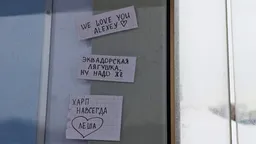 WE LOVE YOU
ALEXEY ♡
ЭКВАДОРСКАЯ
ЛЯГУШКА..
НУ НАДО ЖЕ
ХАРП
НАВСЕГДА
ЛЁША